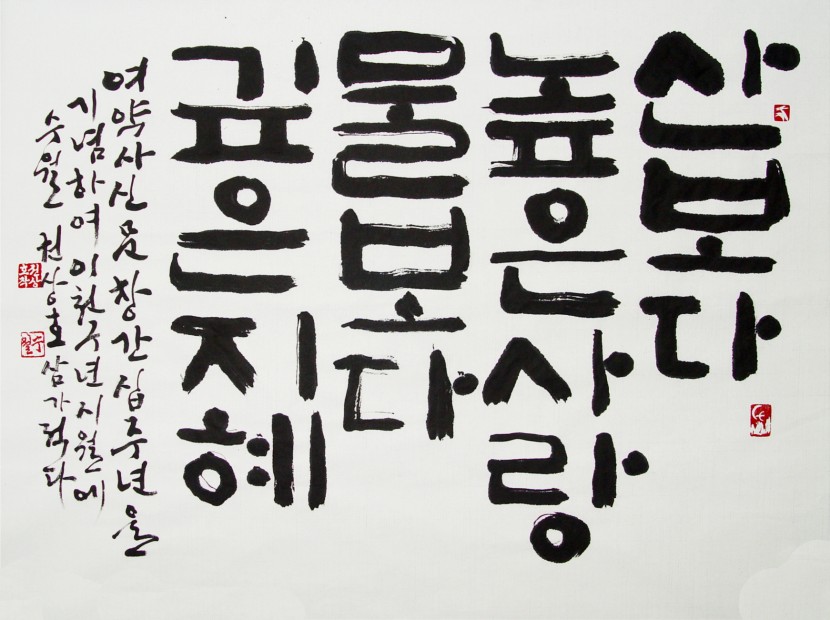 산보다
높은 사랑
물보다
깊은 지혜
여약사신문 창간 십주년을
기념하여 이천구년 지월에
수월 권상호 삼가 적다
권상호작
수월